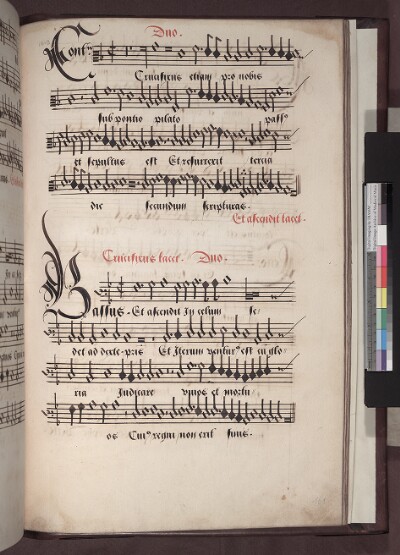 Duo.
Cont
Crucifixus etiam pro nobis
sub pontio pilato pass⁹
et sepultus est Et resurrexit tercia
die secundum scripturas.
Et ascendit tacet.
Crucifixus tacet. Duo.
Bassus. Et ascendit In celum se
det ad dexte pris Et Iterum ventur⁹ est cu glo
ria Iudicare vivos et mortu
os Cui⁹ regni non erit finis.